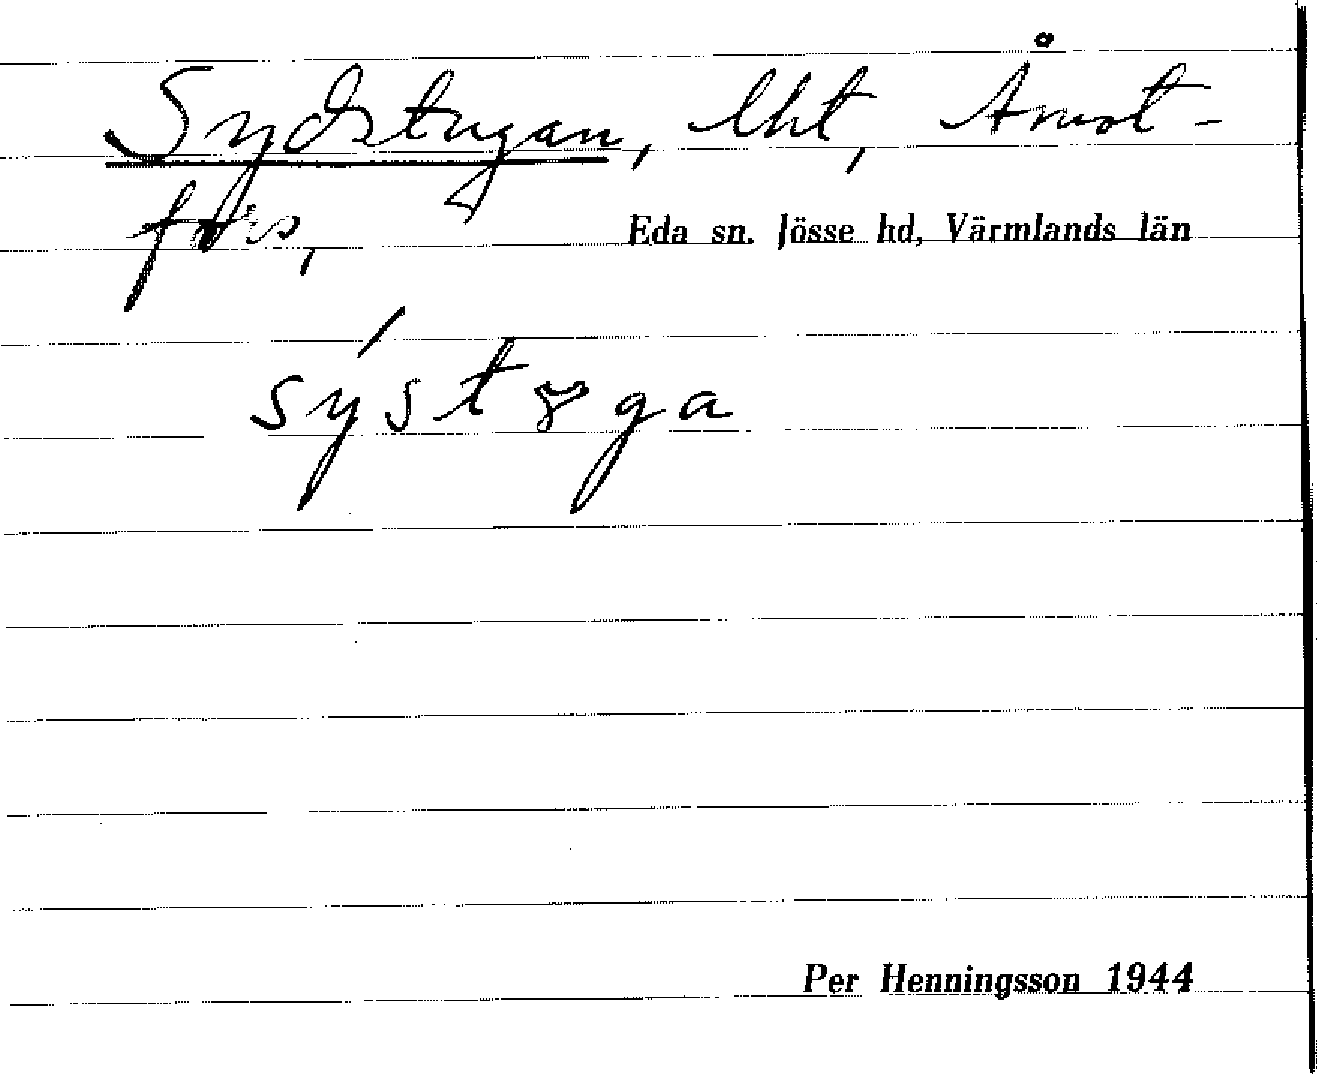 Sydstugan, lht, Åmot-
fors,
Eda sn. Jösse hd, Värmlands län
Per Henningsson 1944